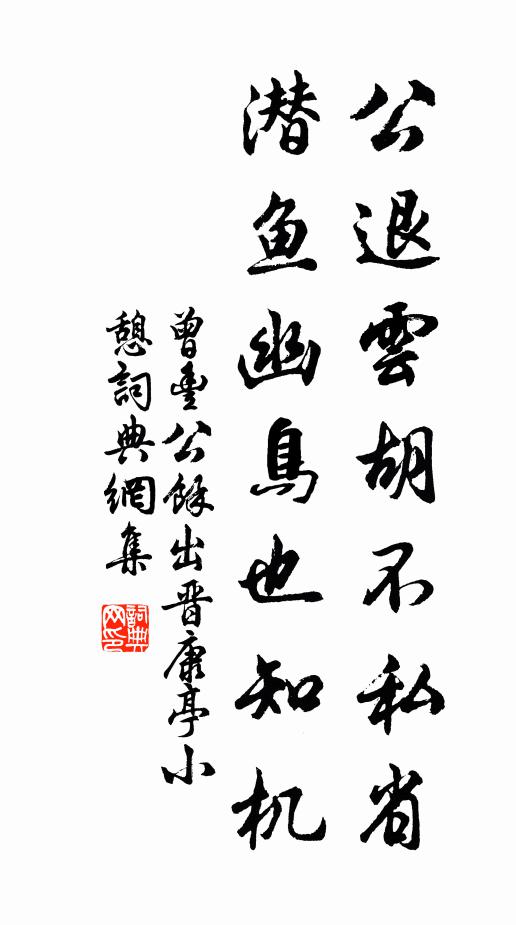 公退雲胡不私省
潜鱼幽鳥也知机
曾豐公餘出晋康亭小
憩詞典網集
詞典網印